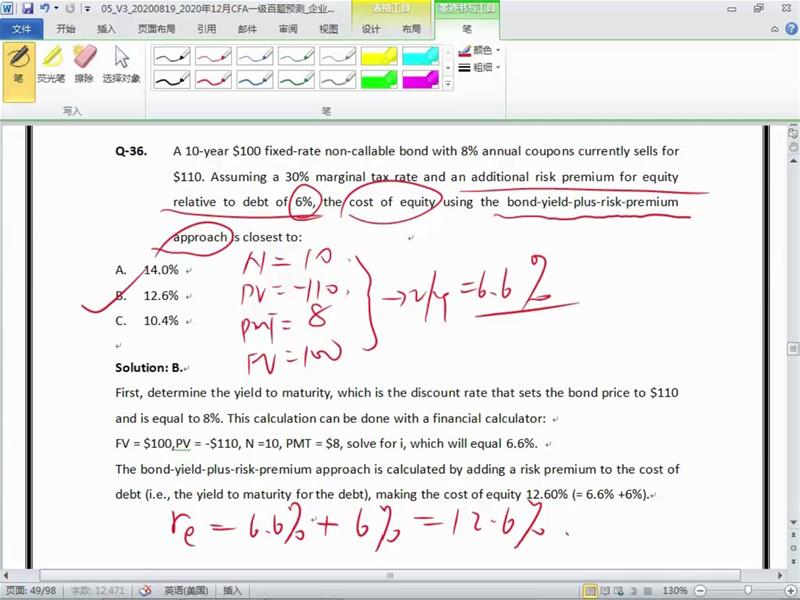 05_V3_20200819_2020年12月CFA一级百题预测_企业...
表格工具
墨迹书写工具
文件 开始 插入 页面布局 引用 邮件 审阅 视图 设计 布局 笔
笔 荧光笔 擦除 选择对象
颜色
粗细
写入 笔
Q-36. A 10-year $100 fixed-rate non-callable bond with 8% annual coupons currently sells for
$110. Assuming a 30% marginal tax rate and an additional risk premium for equity
relative to debt of 6%, the cost of equity using the bond-yield-plus-risk-premium
approach is closest to:
A. 14.0%
B. 12.6%
C. 10.4%
N = 10
PV = -110
PMT = 8
FV = 100
→ I/Y = 6.6%
Solution: B.
First, determine the yield to maturity, which is the discount rate that sets the bond price to $110
and is equal to 8%. This calculation can be done with a financial calculator:
FV = $100,PV = -$110, N =10, PMT = $8, solve for i, which will equal 6.6%.
The bond-yield-plus-risk-premium approach is calculated by adding a risk premium to the cost of
debt (i.e., the yield to maturity for the debt), making the cost of equity 12.60% (= 6.6% +6%).
re = 6.6% + 6% = 12.6%.
页面: 49/98 字数: 12,471 英语(美国) 插入 130%